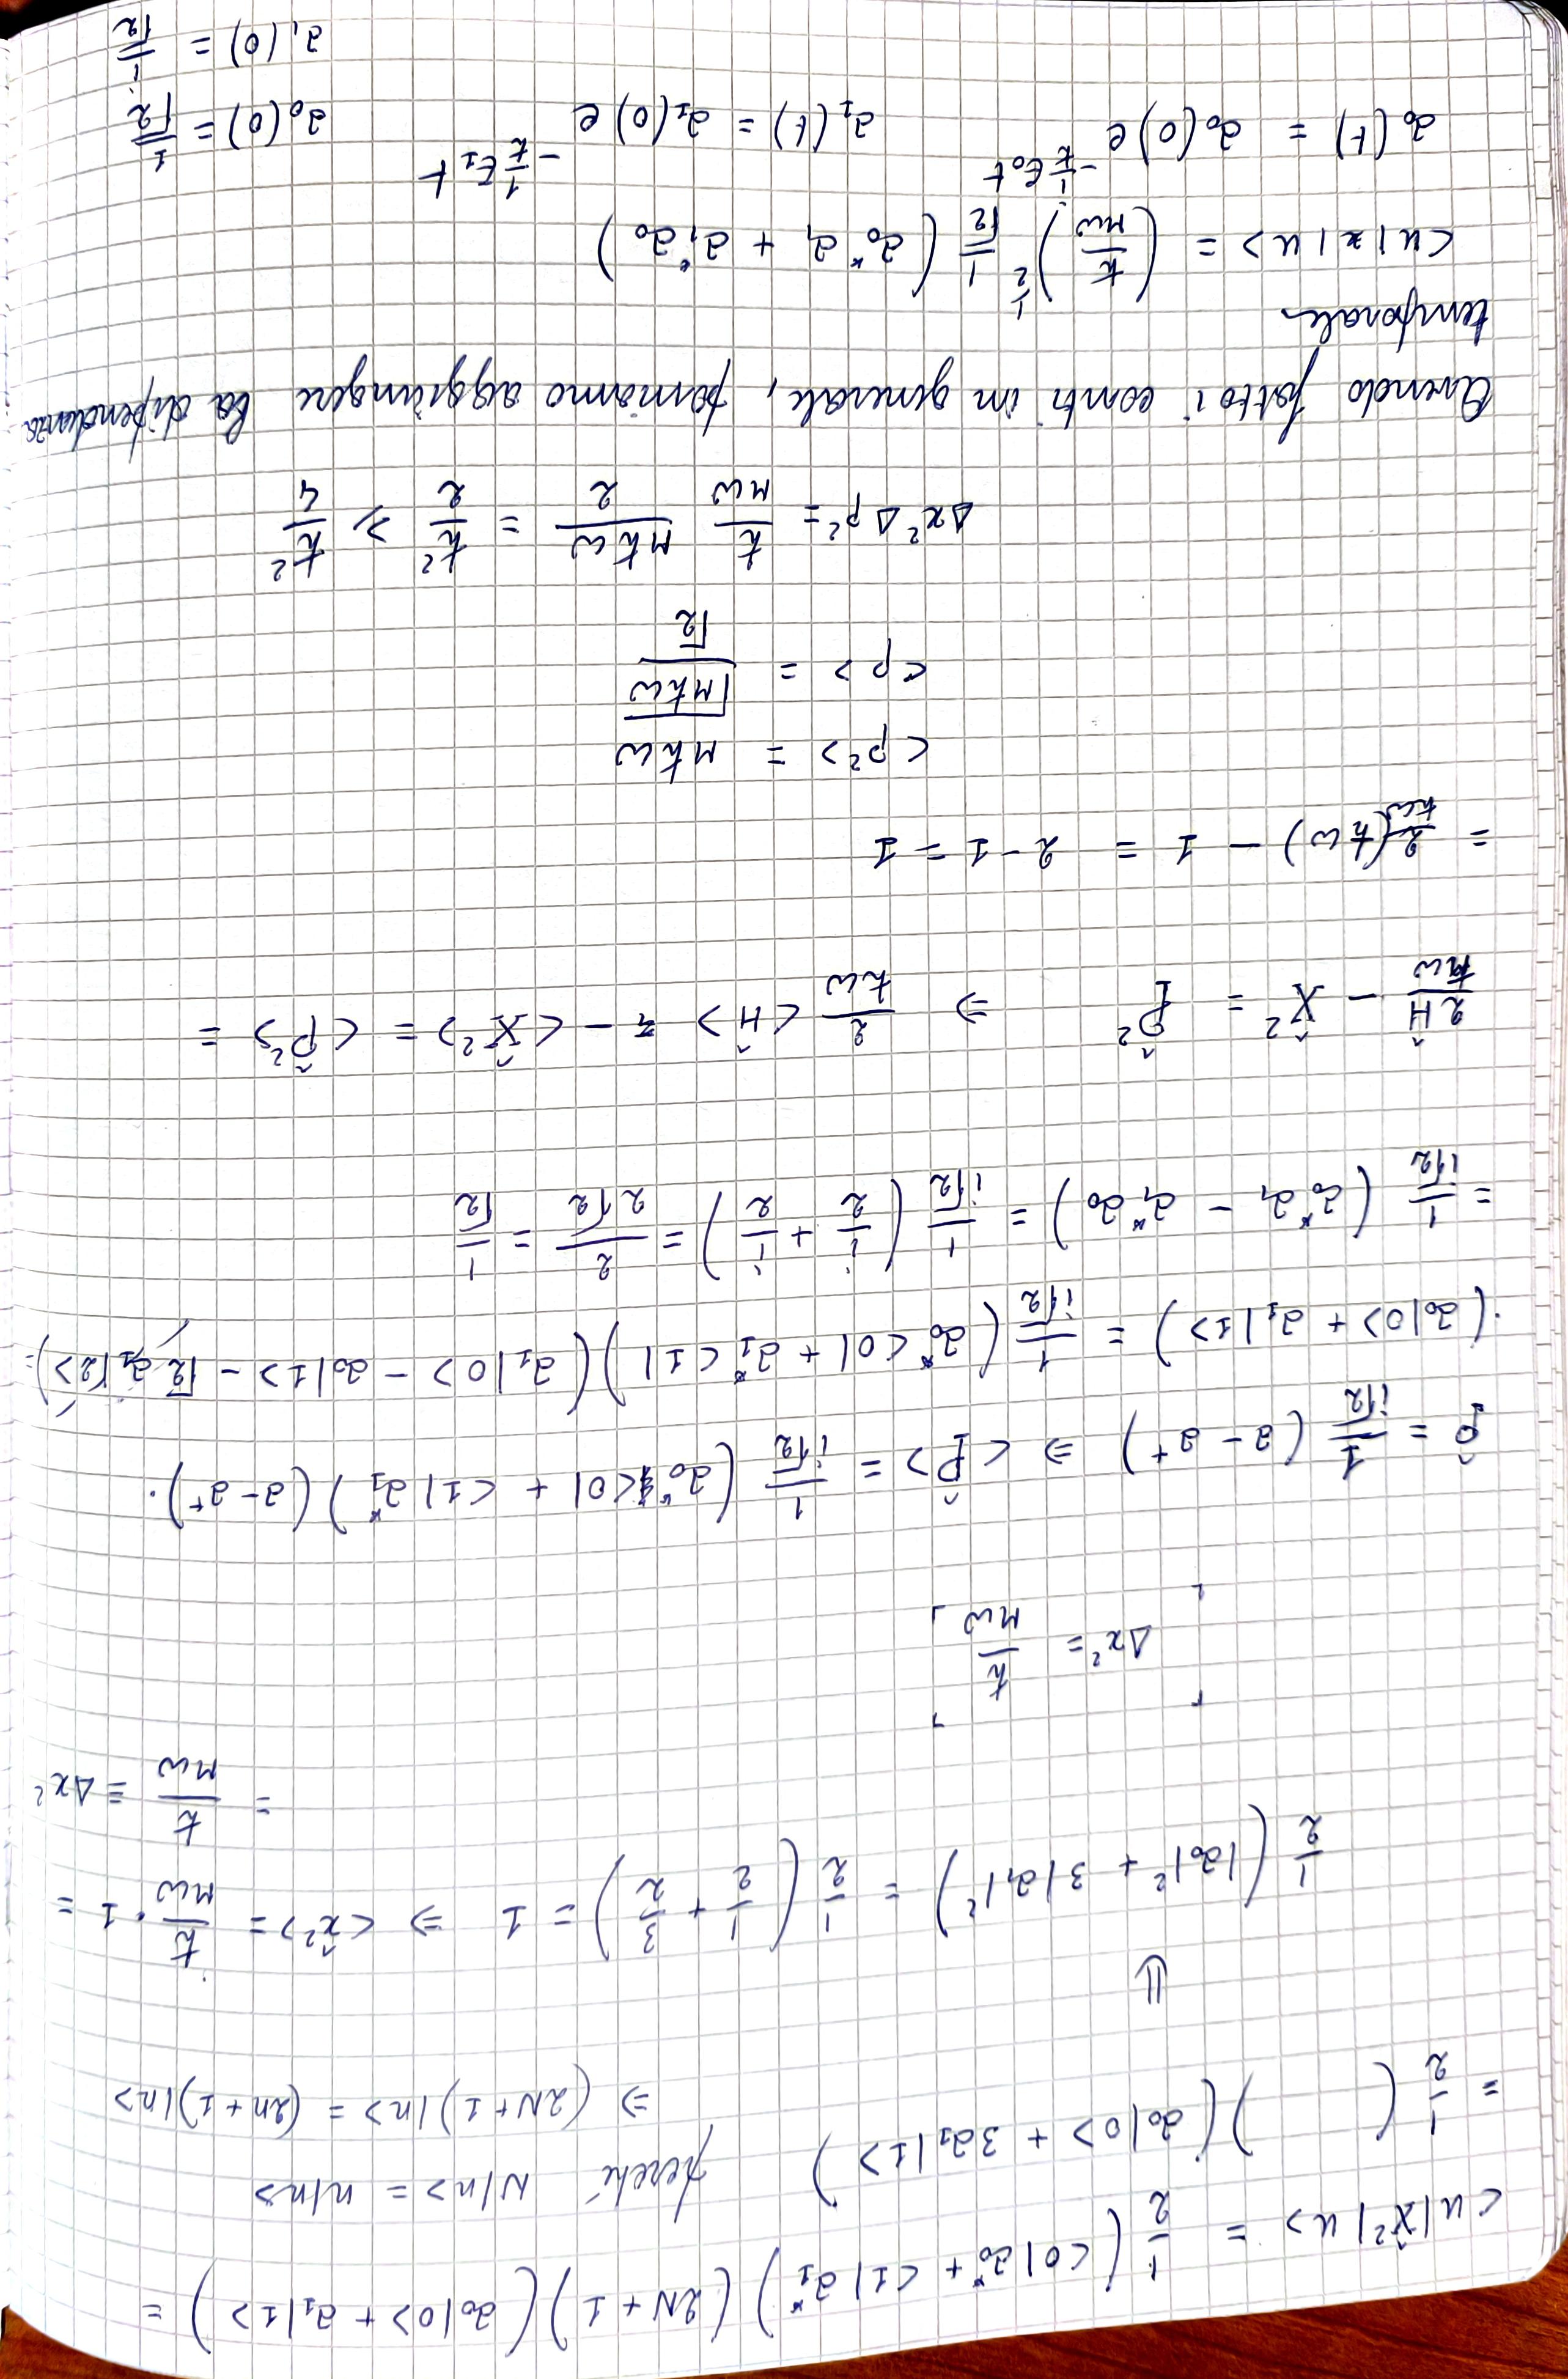 <u|x̂²|u> = 1/2 (<0|a₀* + <1|a₁*)(2N+1)(a₀|0> + a₁|1>) =
= 1/2 (      )(a₀|0> + 3a₁|1>) perché N|n> = n|n>
⇒ (2N+1)|n> = (2n+1)|n>
⇓
1/2 (|a₀|² + 3|a₁|²) = 1/2 (1/2 + 3/2) = 1 ⇒ <x̂²> = ħ/mω · 1 =
= ħ/mω ≡ Δx²
Δx² = ħ/mω
p̂ = 1/(i√2) (a - a⁺) ⇒ <p̂> = 1/(i√2) (a₀*<0| + <1|a₁*)(a - a⁺)·
·(a₀|0> + a₁|1>) = 1/(i√2) (a₀*<0| + a₁*<1|)(a₁|0> - a₀|1> - √2 a₁|2>) =
= 1/(i√2) (a₀*a₁ - a₁*a₀) = 1/(i√2) (i/2 + i/2) = 2/(2√2) = 1/√2
2Ĥ/ħω - X̂² = P̂² ⇒ 2/ħω <Ĥ> - <X̂²> = <P̂²> =
= 2/ħω (ħω) - 1 = 2 - 1 = 1
<p²> = mħω
<p> = √mħω/√2
Δx²Δp² = ħ/mω mħω/2 = ħ²/2 ≥ ħ²/4
Avendo fatto i conti in generale, possiamo aggiungere la dipendenza
temporale
<u|x|u> = (ħ/mω)^(1/2) 1/√2 (a₀*a₁ + a₁*a₀)
a₀(t) = a₀(0) e^(-i/ħ E₀t) a₁(t) = a₁(0) e^(-i/ħ E₁t) a₀(0) = 1/√2
a₁(0) = i/√2